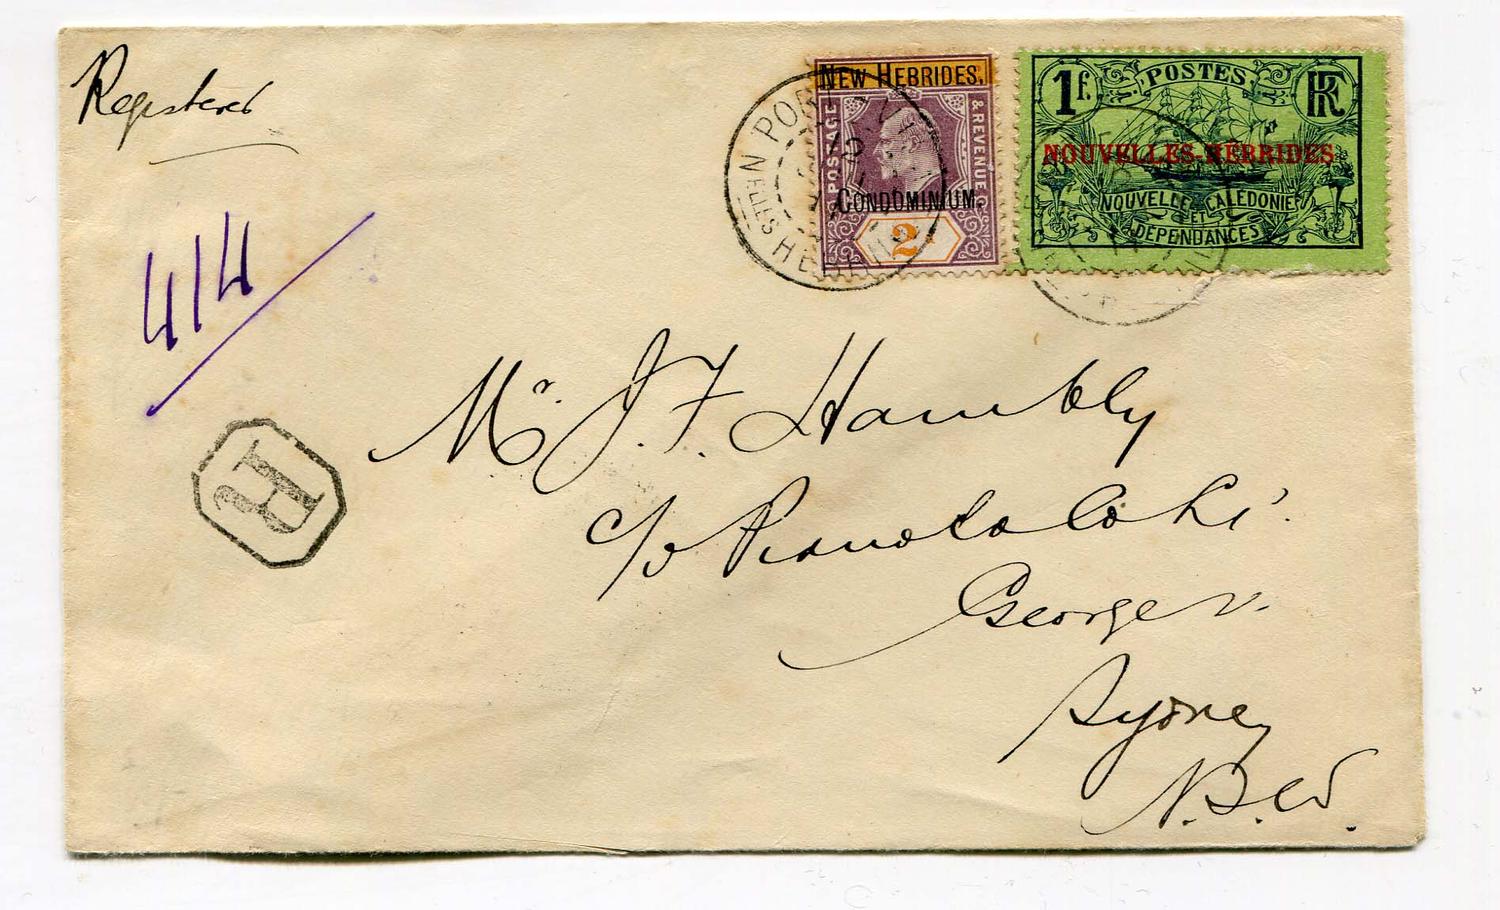 Registered
NEW HEBRIDES.
POSTAGE & REVENUE
CONDOMINIUM.
2
1f. POSTES RF
NOUVELLES-HÉBRIDES
NOUVELLE CALÉDONIE
ET
DÉPENDANCES
414
R
Mr. J. F. Hambly
c/o
George
Sydney
N.S.W.